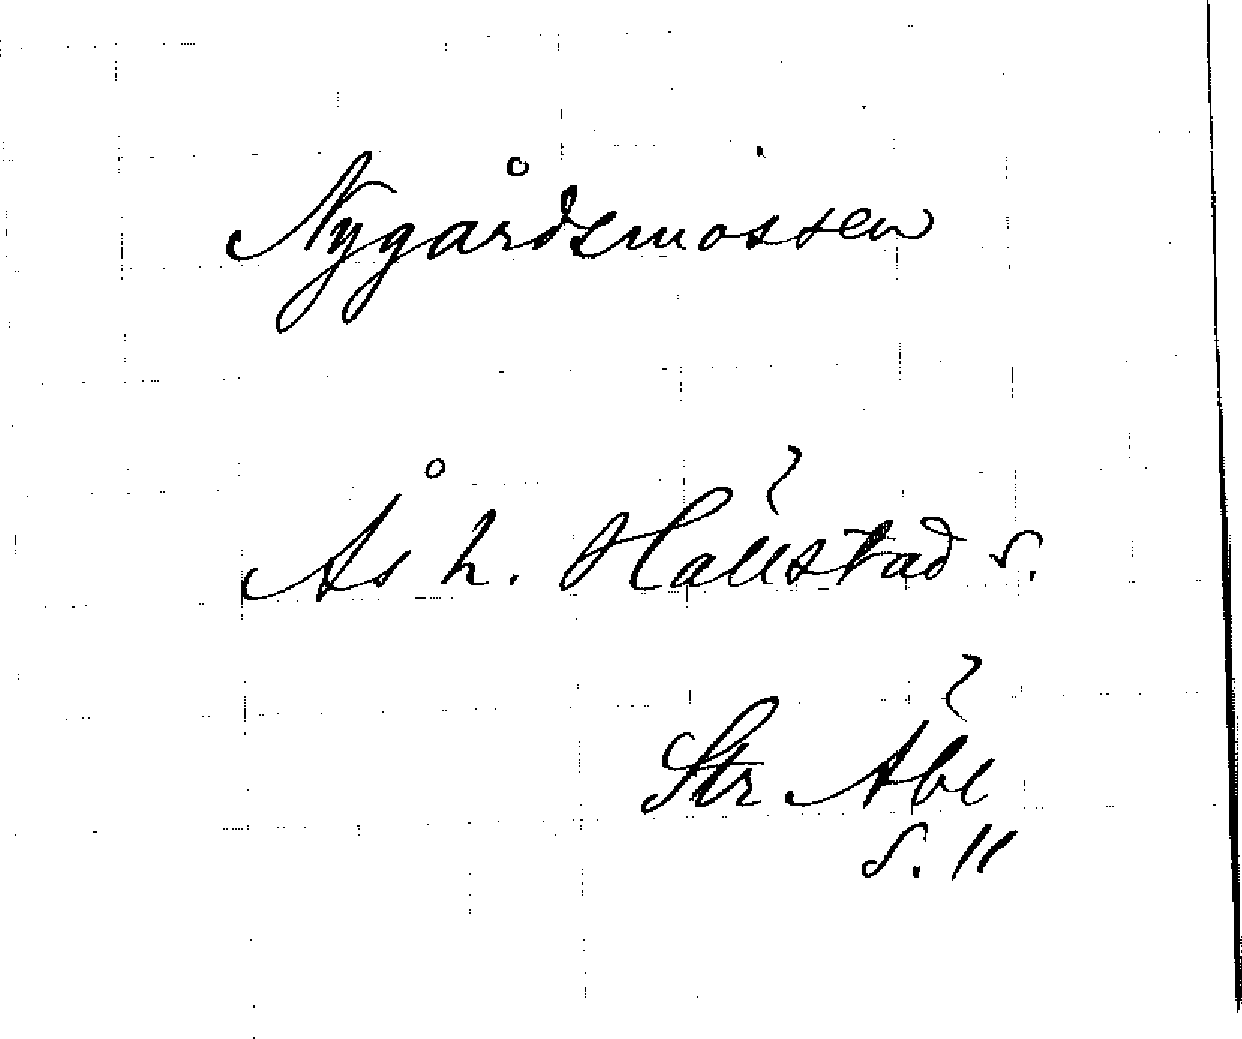 Nygårdsmossen
Ås h. Hällstad s.
Str Äbe
S. 11